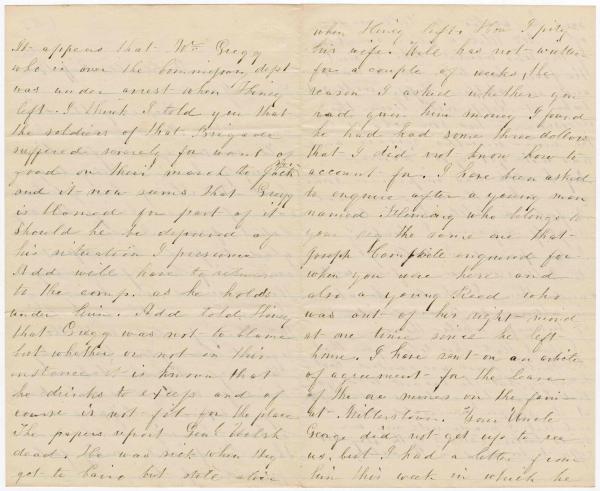 It appears that Wm Gregg
who is over the Commissary dept
was under arrest when Heney
left. I think I told you that
the soldiers of that Brigade
suffered severely for want of
food on their march to Jack
and it now seems that Gregg
is blamed for part of it
Should he be deprived of
his situation I presume
Add will have to return
to the comp. as he holds
under him. Add told Heney
that Gregg was not to blame
but whether or not in this
instance it is known that
he drinks to excess and of
course is not fit for the place
The papers report Genl Welsh
dead. He was sick when they
got to Cairo but still alive
when Heney left. How I pity
his wife. Will has not written
for a couple of weeks, the
reason I asked whether you
had given him money I found
he had had some three dollars
that I did not know how to
account for. I have been asked
to enquire after a young man
named Fleming who belongs to
your the same one that
Joseph Campbell enquired for
when you were here and
also a young Reed who
was out of his right mind
at one time since he left
home. I have sent on an article
of agreement for the lease
of the ore mines on the farm
at Millerstown. Your Uncle
George did not get up to see
us, but I had a letter from
him this week in which he